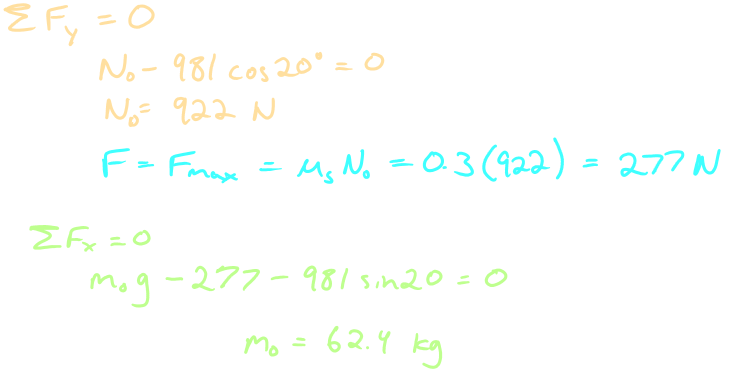 ΣF_y = 0
N₀ - 981 cos 20° = 0
N₀ = 922 N
F = F_max = μ_s N₀ = 0.3(922) = 277 N
ΣF_x = 0
m₀g - 277 - 981 sin20 = 0
m₀ = 62.4 kg